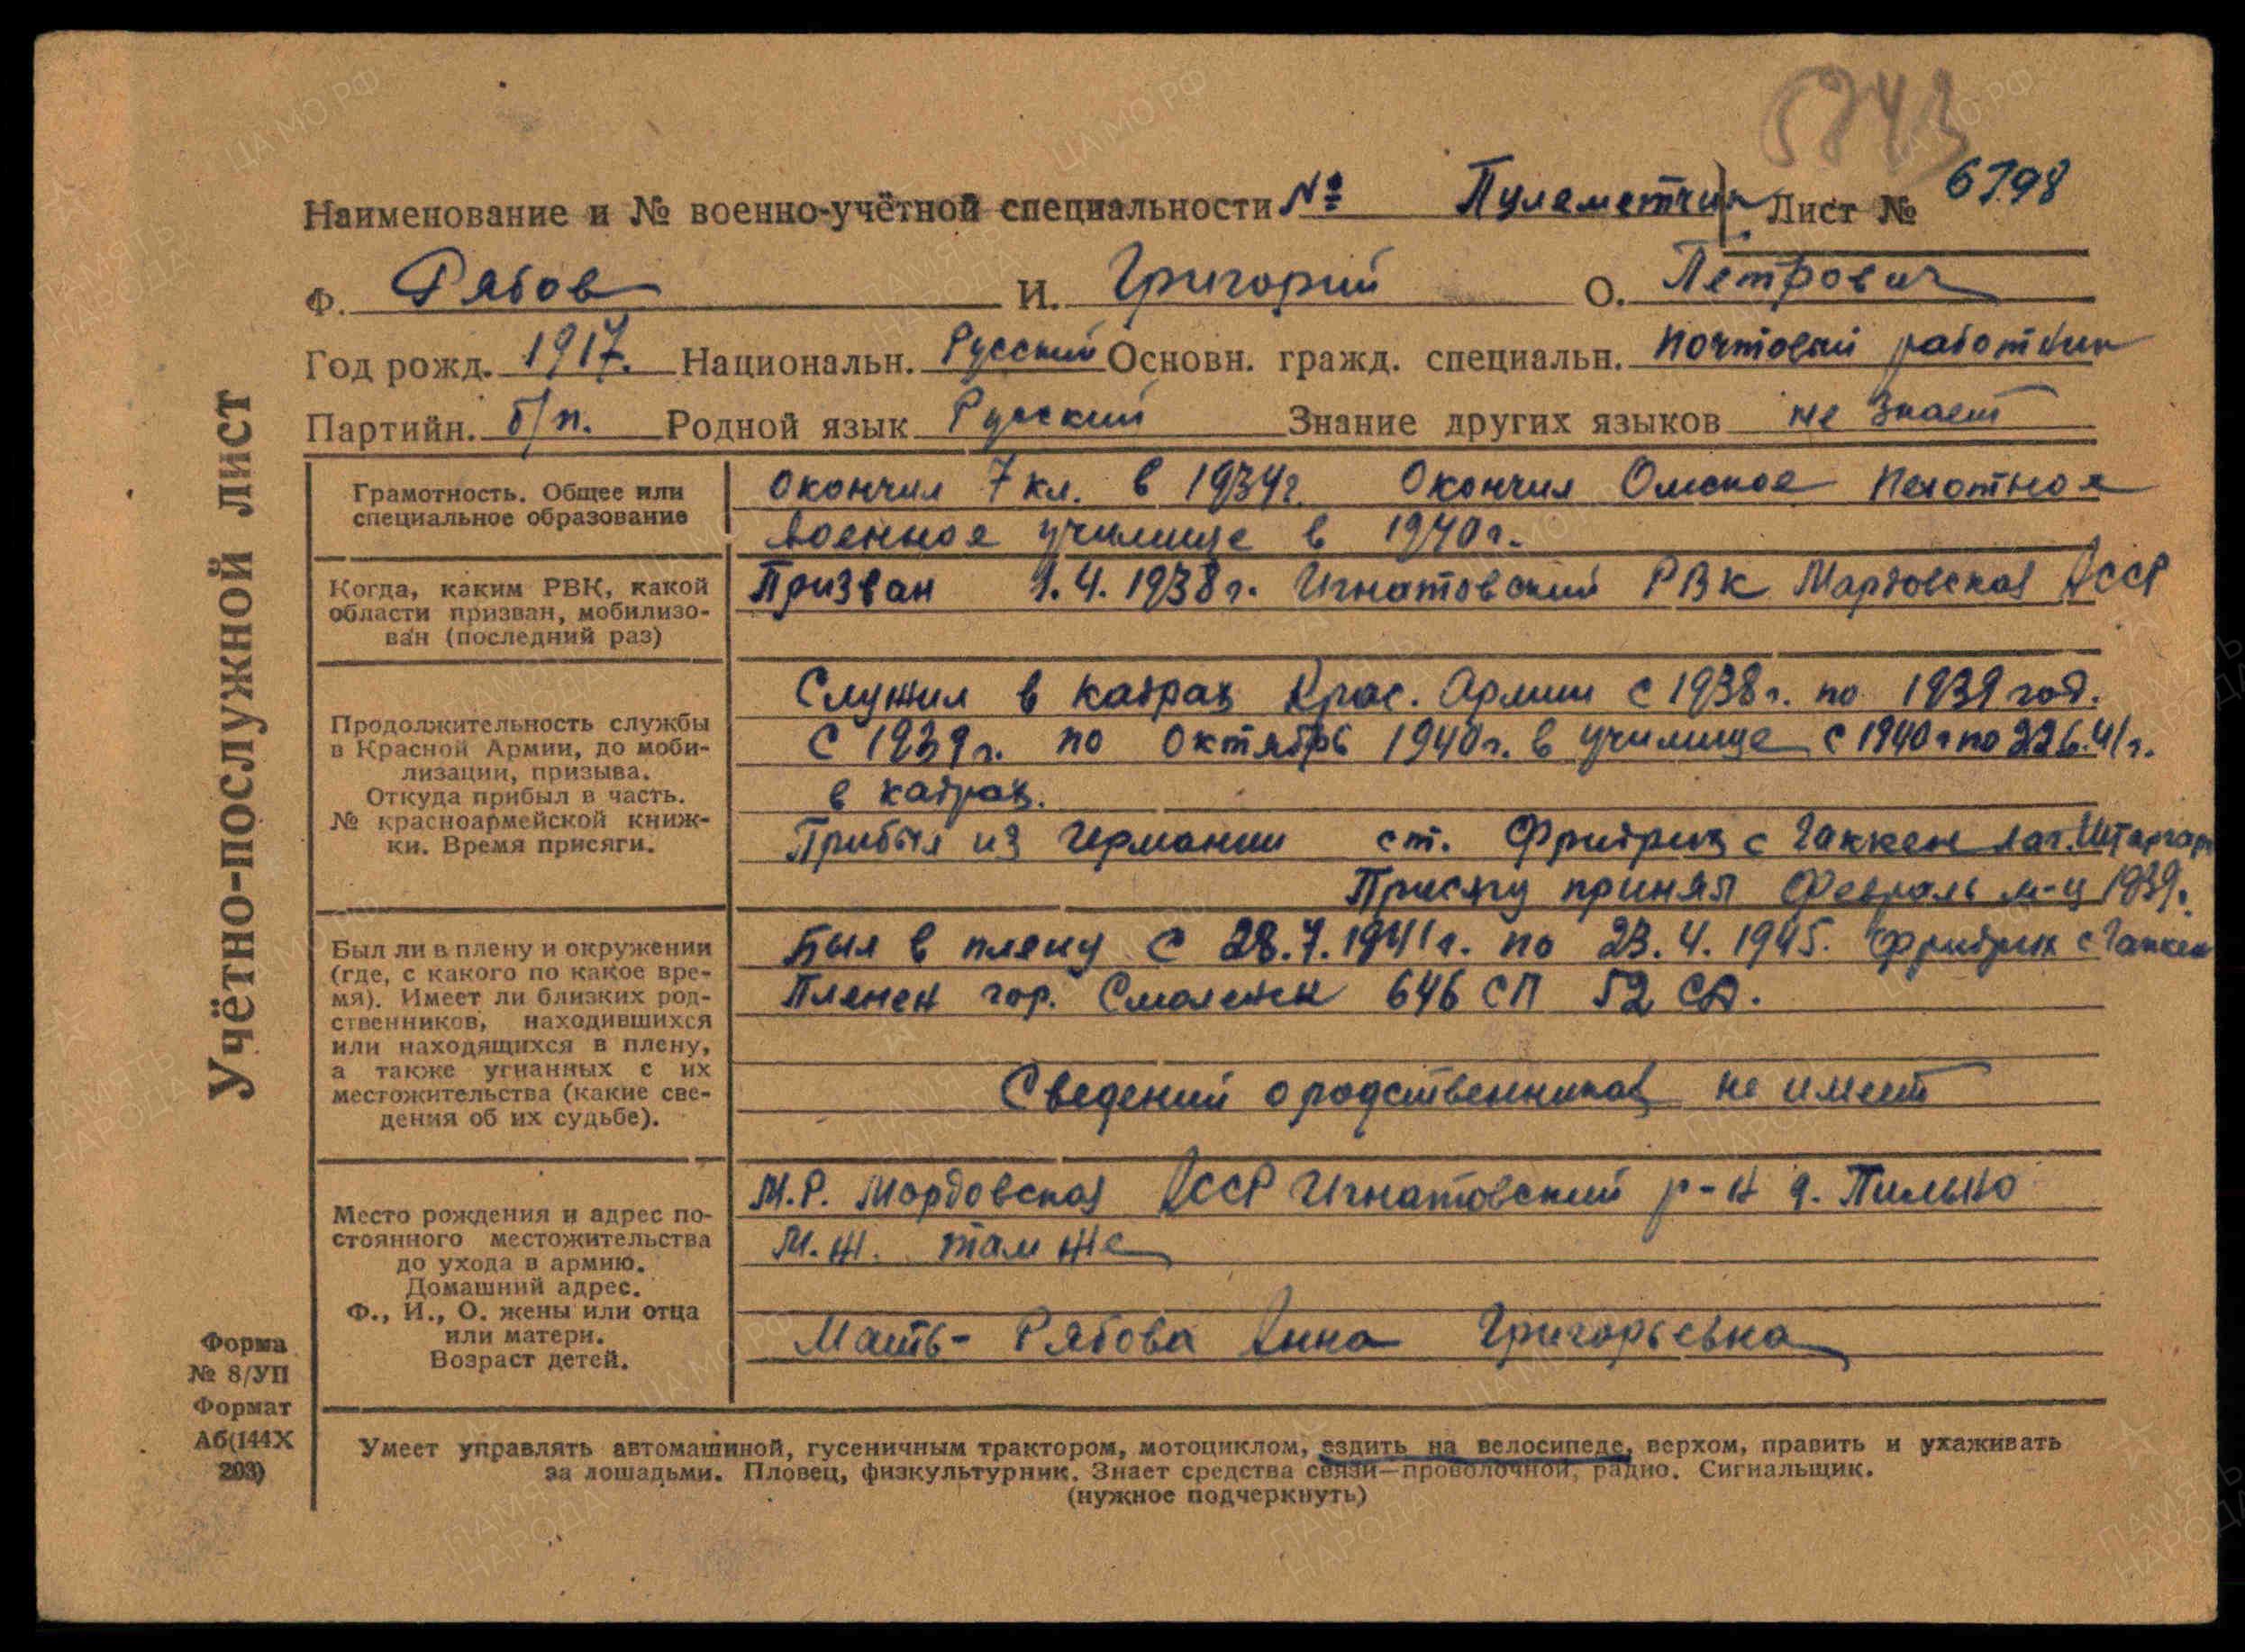 5843
Наименование и № военно-учётной специальности № Пулеметчик Лист № 6798
Ф. Рябов И. Григорий О. Петрович
Год рожд. 1917. Национальн. Русский Основн. гражд. специальн. почтовый работник
Партийн. б/п. Родной язык Русский Знание других языков не знает
Учётно-послужной лист
Грамотность. Общее или
специальное образование
окончил 7 кл. в 1934г. Окончил Омское пехотное
военное училище в 1940г.
Когда, каким РВК, какой
области призван, мобилизо-
ван (последний раз)
Призван 1.4.1938г. Игнатовский РВК Мордовская АССР
Продолжительность службы
в Красной Армии, до моби-
лизации, призыва.
Откуда прибыл в часть.
№ красноармейской книж-
ки. Время присяги.
Служил в кадрах Крас. Армии с 1938г. по 1939 год.
С 1939г. по октябрь 1940г. в училище с 1940г по 22.6.41г.
в кадрах.
Прибыл из Германии ст. Фридрихс Гаккен лаг. Штаргард
Присягу принял Февраль м-ц 1939.
Был ли в плену и окружении
(где, с какого по какое вре-
мя). Имеет ли близких род-
ственников, находившихся
или находящихся в плену,
а также угнанных с их
местожительства (какие све-
дения об их судьбе).
Был в плену с 28.7.1941г. по 23.4.1945. Фридрихс Гаккен
Пленен гор. Смоленск 646 СП 52 СД.
Сведений о родственниках не имеет
Место рождения и адрес по-
стоянного местожительства
до ухода в армию.
Домашний адрес.
Ф., И., О. жены или отца
или матери.
Возраст детей.
М.Р. Мордовская АССР Игнатовский р-н д. Пильно
М.Ж. там же
Мать - Рябова Анна Григорьевна
Форма
№ 8/УП
Формат
А6(144Х
203)
Умеет управлять автомашиной, гусеничным трактором, мотоциклом, ездить на велосипеде, верхом, править и ухаживать
за лошадьми. Пловец, физкультурник. Знает средства связи—проволочной, радио. Сигнальщик.
(нужное подчеркнуть)
ЦА МО РФ
ПАМЯТЬ
НАРОДА